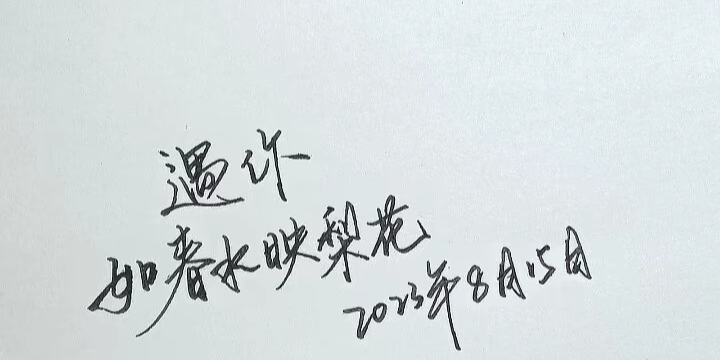 遇你
如春水映梨花
2023年8月15日